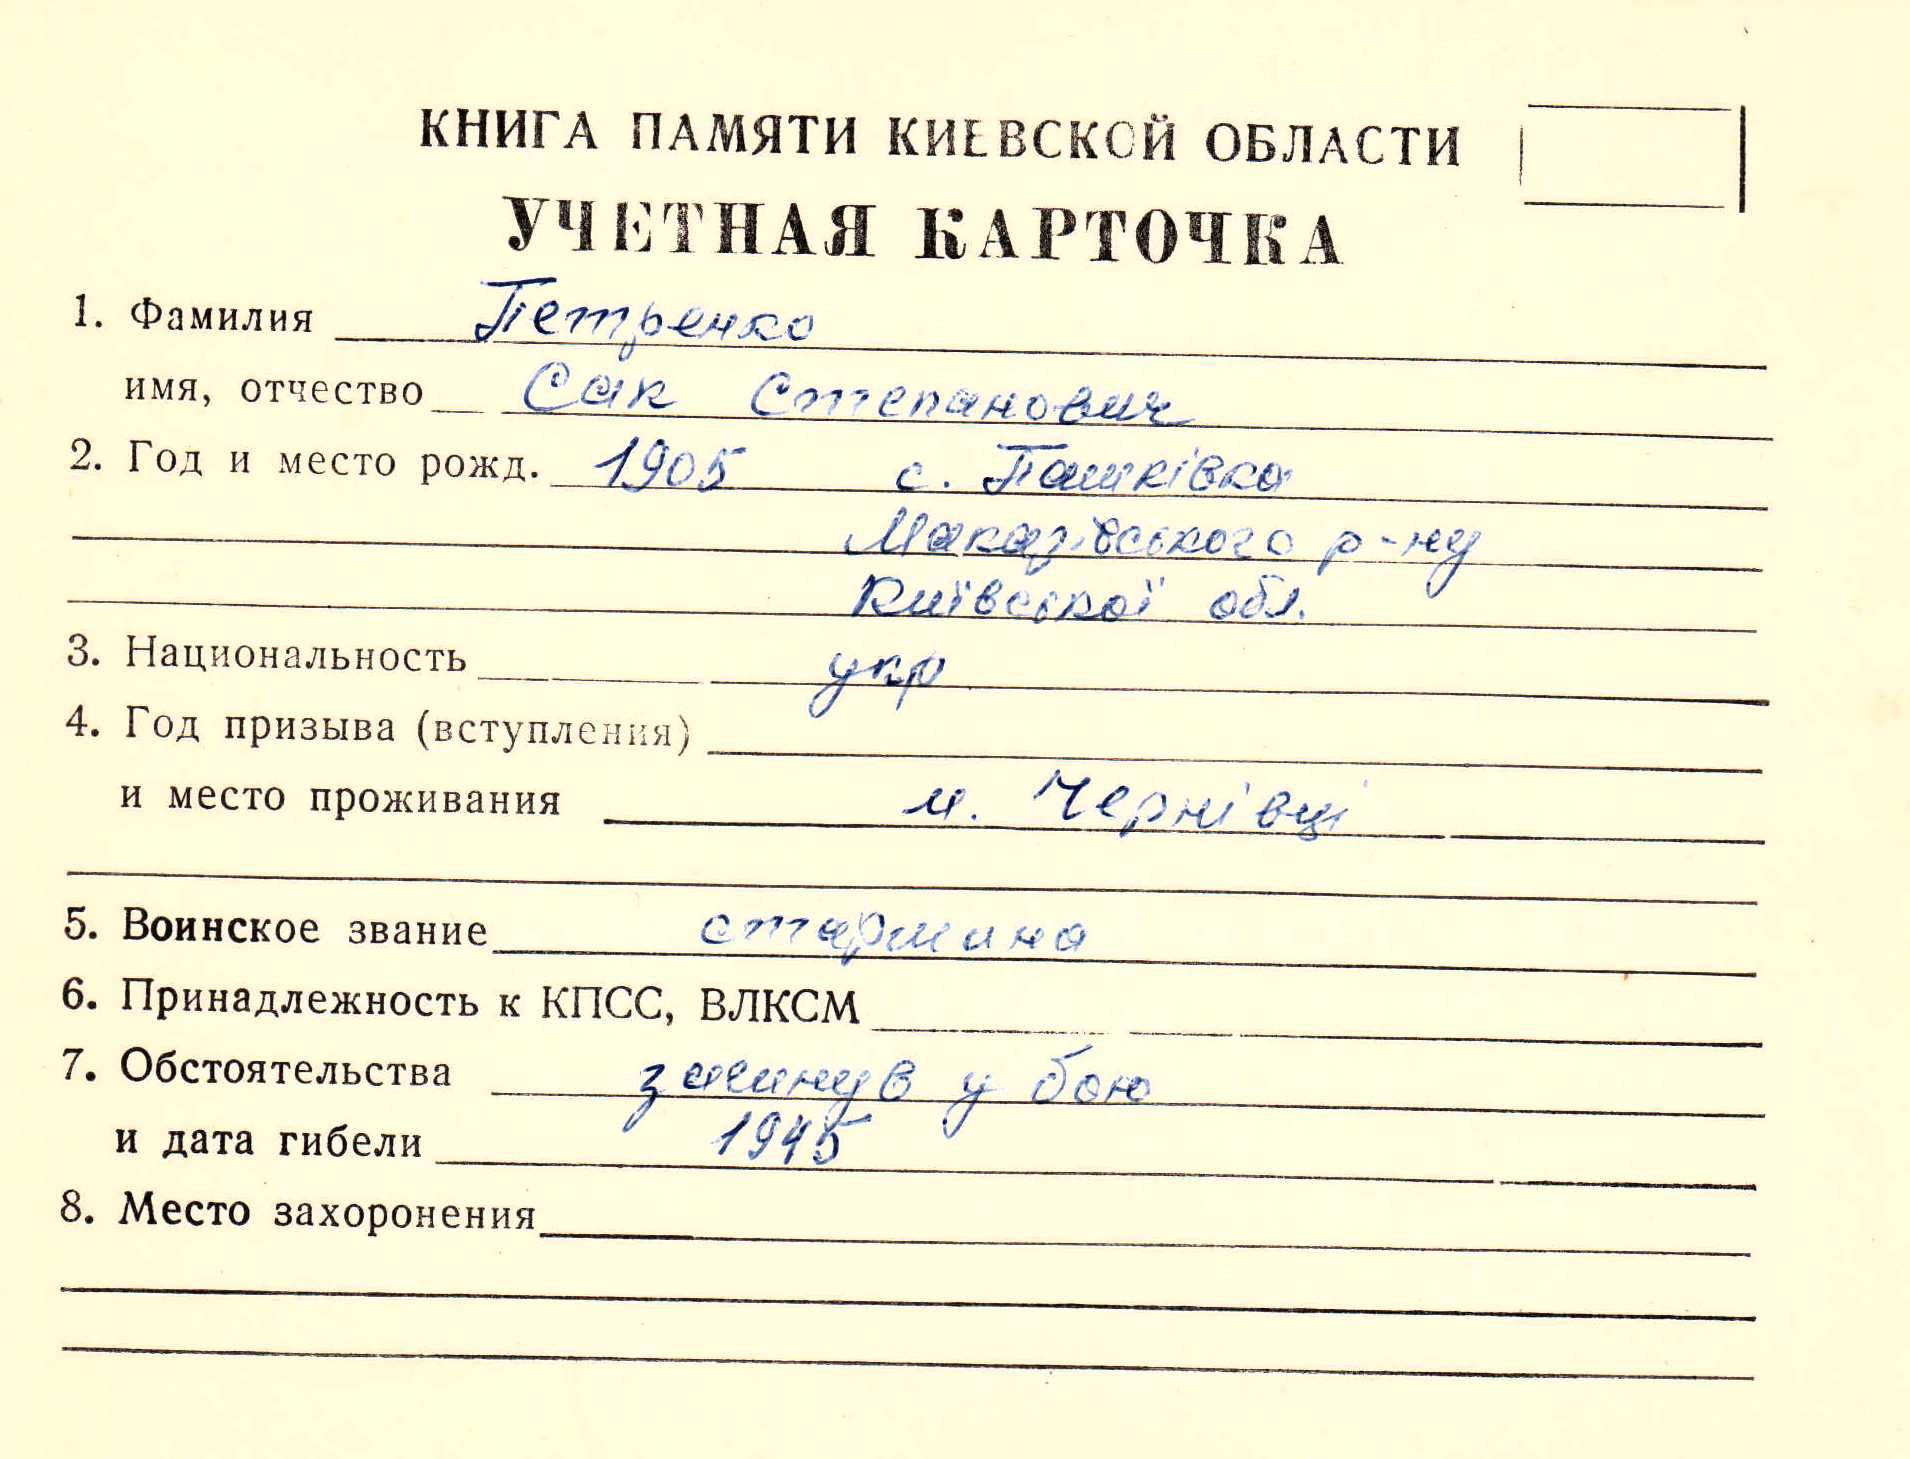 КНИГА ПАМЯТИ КИЕВСКОЙ ОБЛАСТИ
УЧЕТНАЯ КАРТОЧКА
1. Фамилия Петренко
имя, отчество Сак Степанович
2. Год и место рожд. 1905 с. Пашківка
Макарівського р-ну
Київської обл.
3. Национальность укр
4. Год призыва (вступления)
и место проживания м. Чернівці
5. Воинское звание старшина
6. Принадлежность к КПСС, ВЛКСМ
7. Обстоятельства загинув у бою
и дата гибели 1945
8. Место захоронения